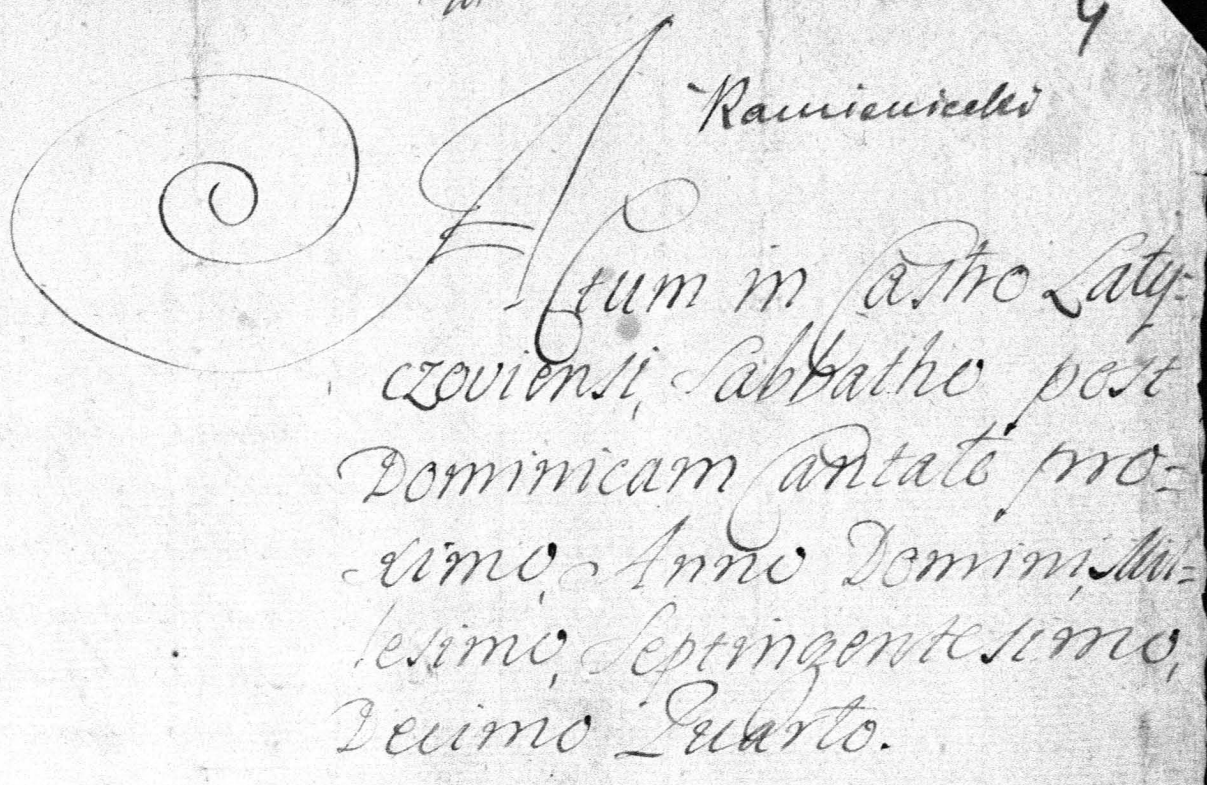 4
Kamieniecki
Actum in Castro Laty=
czoviensi, Sabbatho post
Dominicam Cantate pro=
ximo, Anno Domini, Mil=
lesimo, Septingentesimo,
Decimo Quarto.